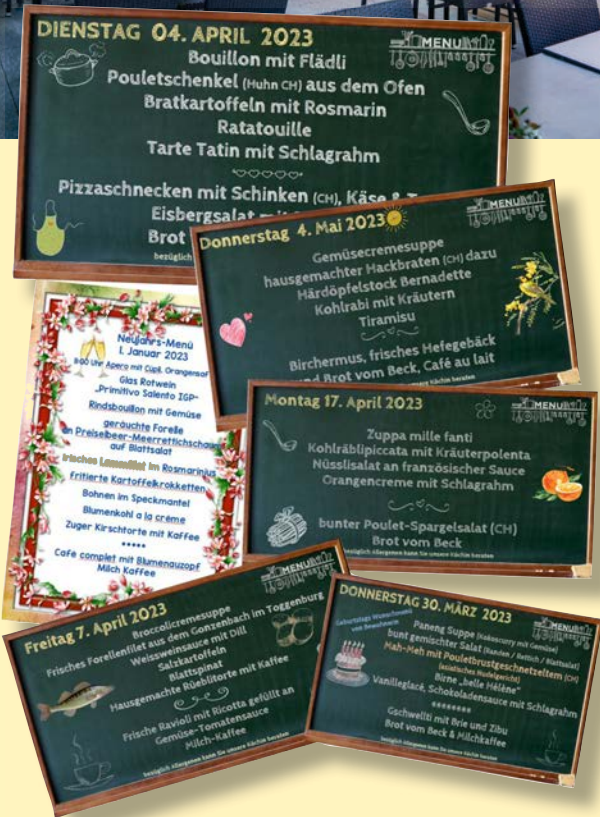 DIENSTAG 04. APRIL 2023
MENU
Bouillon mit Flädli
Pouletschenkel (Huhn CH) aus dem Ofen
Bratkartoffeln mit Rosmarin
Ratatouille
Tarte Tatin mit Schlagrahm
Pizzaschnecken mit Schinken (CH), Käse &
Eisbergsalat
Brot
bezüglich
Donnerstag 4. Mai 2023
MENU
Gemüsecremesuppe
hausgemachter Hackbraten (CH) dazu
Härdöpfelstock Bernadette
Kohlrabi mit Kräutern
Tiramisu
Birchermus, frisches Hefegebäck
und Brot vom Beck, Café au lait
Neujahrs-Menü
1. Januar 2023
Uhr Apero mit Cüpli, Orangensaf
Glas Rotwein
„Primitivo Salento IGP"
Rindsbouillon mit Gemüse
geräuchte Forelle
an Preiselbeer-Meerrettichschaum
auf Blattsalat
im Rosmarinjus
fritierte Kartoffelkrokketten
Bohnen im Speckmantel
Blumenkohl a la crème
Zuger Kirschtorte mit Kaffee
*****
Cafe complet mit Blumenauzopf
Milch Kaffee
Montag 17. April 2023
MENU
Zuppa mille fanti
Kohlräblipiccata mit Kräuterpolenta
Nüsslisalat an französischer Sauce
Orangencreme mit Schlagrahm
bunter Poulet-Spargelsalat (CH)
Brot vom Beck
bezüglich Allergenen kann Sie unsere Köchin beraten
Freitag 7. April 2023
MENU
Broccolicremesuppe
Frisches Forellenfilet aus dem Gonzenbach im Toggenburg
Weissweinsauce mit Dill
Salzkartoffeln
Blattspinat
Hausgemachte Rüeblitorte mit Kaffee
Frische Ravioli mit Ricotta gefüllt an
Gemüse-Tomatensauce
Milch-Kaffee
bezüglich Allergenen kann Sie unsere Köchin beraten
DONNERSTAG 30. MÄRZ 2023
MENU
Geburtstags Wunschmenü
von Bewohnerin
Paneng Suppe (Kokoscurry mit Gemüse)
bunt gemischter Salat (Randen / Rettich / Blattsalat)
Mah-Meh mit Pouletbrustgeschnetzeltem (CH)
(asiatisches Nudelgericht)
Birne „belle Hélène"
Vanilleglacé, Schokoladensauce mit Schlagrahm
********
Gschwellti mit Brie und Zibu
Brot vom Beck & Milchkaffee
bezüglich Allergenen kann Sie unsere Köchin beraten